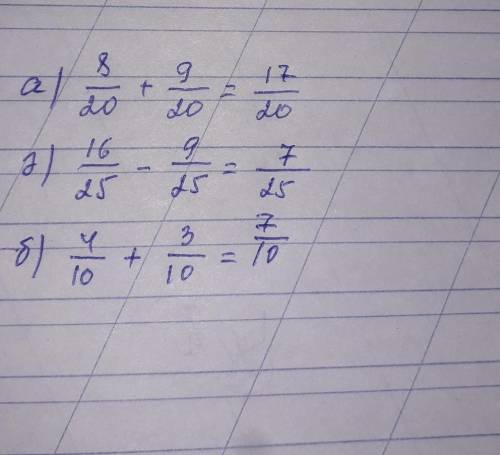 а) 8/20 + 9/20 = 17/20
г) 16/25 - 9/25 = 7/25
б) 4/10 + 3/10 = 7/10